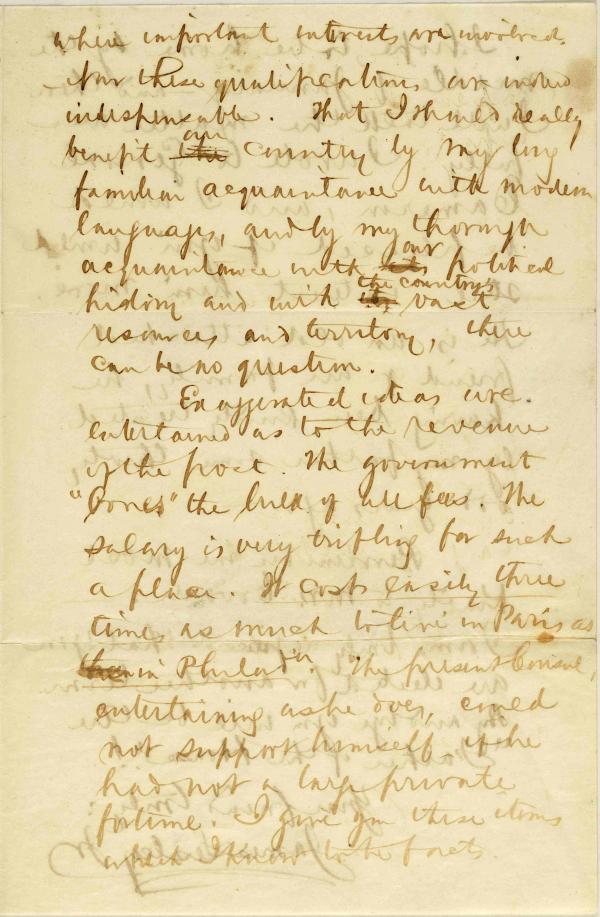 where important interests are involved.
Now these qualifications are indeed
indispensable. That I should really
our
benefit the country by my long
familiar acquaintance with modern
languages, and by my thorough
our
acquaintance with its political
the country's
history and with its vast
resources and territory, there
can be no question.
Exaggerated ideas are
entertained as to the revenue
of the post. The government
the bulk of all fees. The
salary is very trifling for such
a place. It costs easily three
times as much to live in Paris as
in Philad'a. The present Consul,
entertaining as he does, could
not support himself, if he
had not a large private
fortune. I give you these items
which I know to be facts.